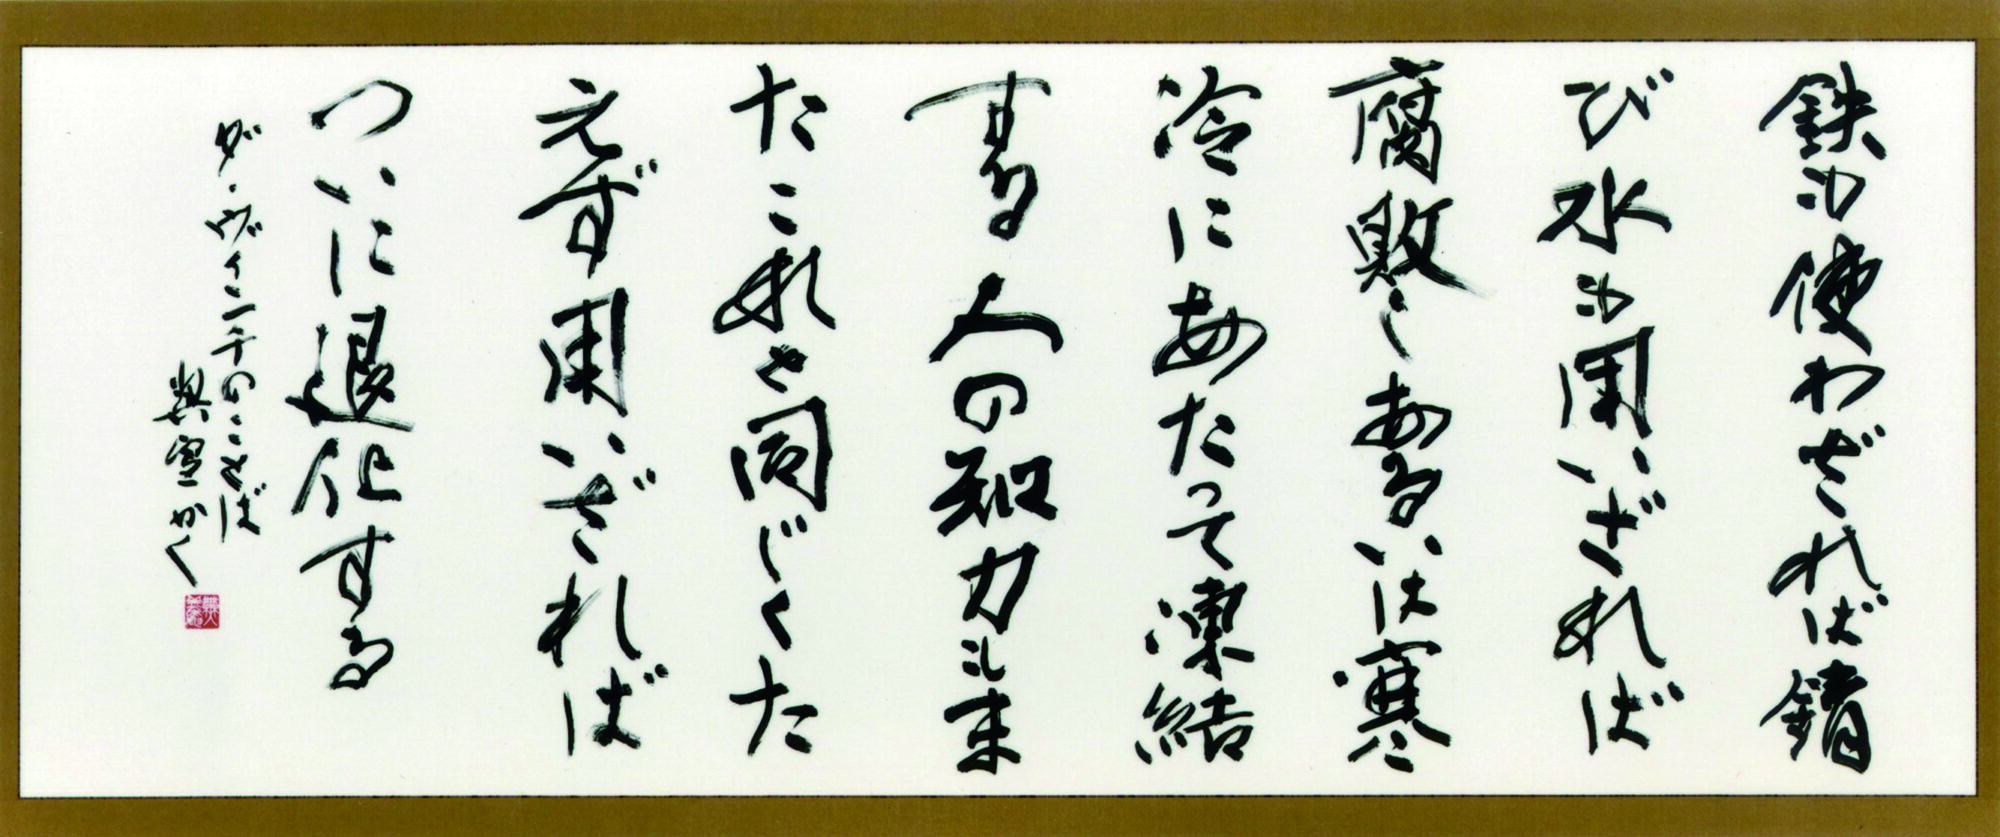 鉄も使わざれば錆
び水も用いざれば
腐敗しあるいは寒
冷にあたって凍結
する人の知力もま
たこれと同じくた
えず用いざれば
ついに退化する
ダ・ヴィンチのことば
かく